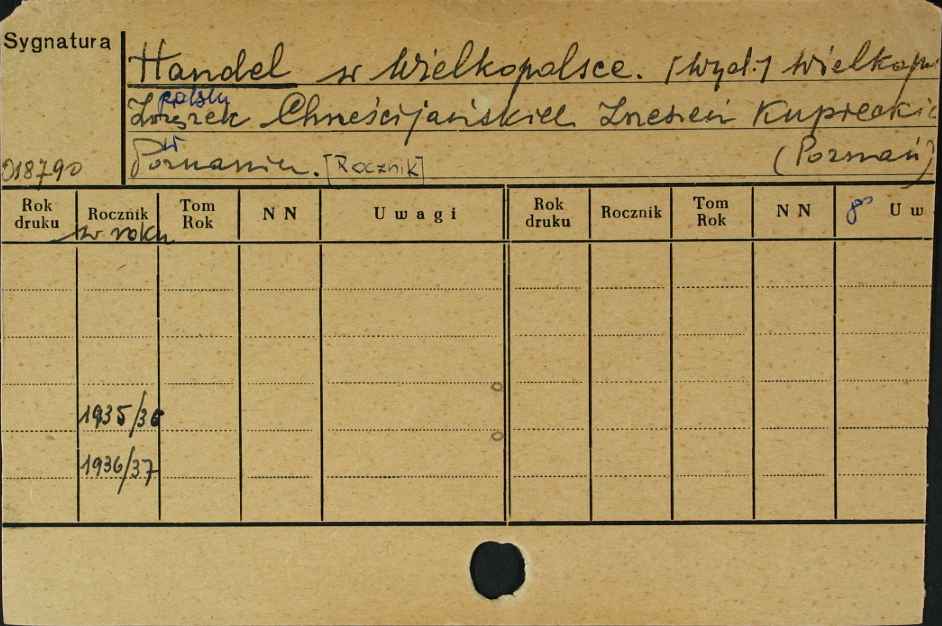 Sygnatura
Handel w Wielkopolsce. [Wyd:] Wielkopo
polski
Związek Chrześcijańskich Zrzeszeń Kupiecki
w
018790 Poznaniu. [Rocznik] (Poznań)
Rok druku Rocznik Tom Rok N N Uwagi Rok druku Rocznik Tom Rok N N Uw
w roku
1935/36
1936/37